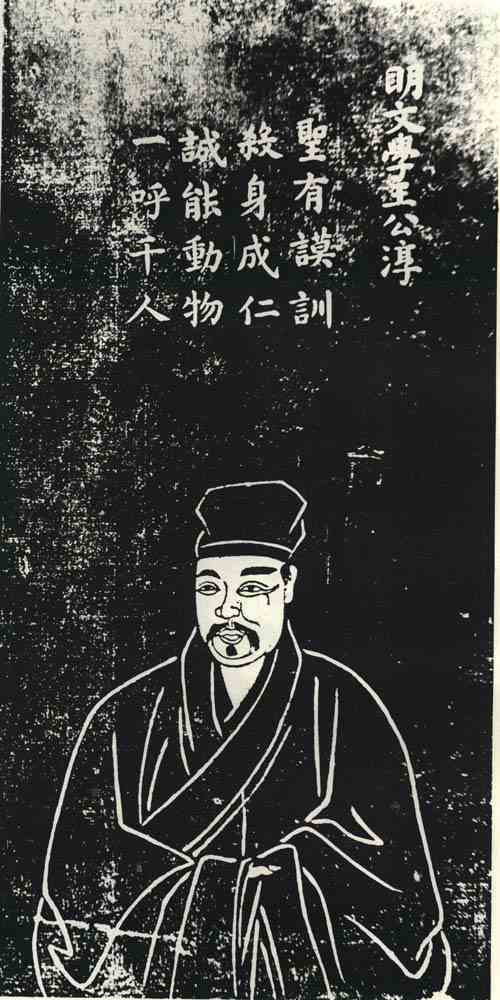 明文學王公淳
聖有謨訓
殺身成仁
誠能動物
一呼千人